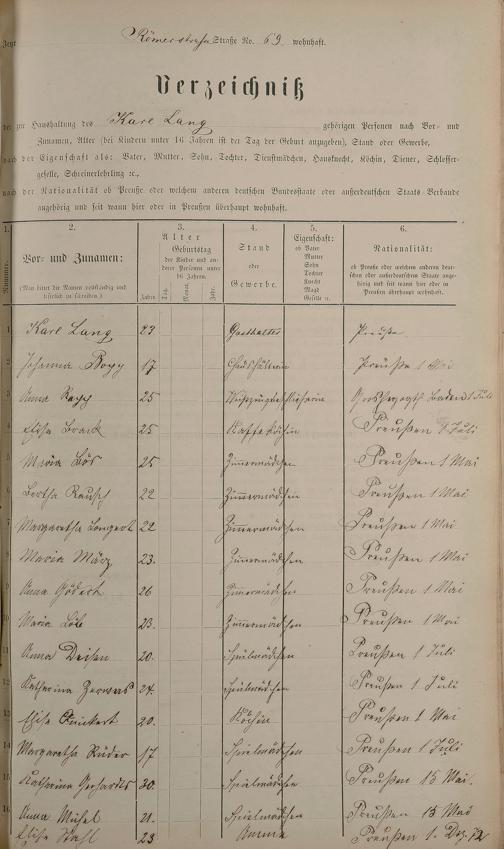 Jezt Römerstraße Straße No. 69 wohnhaft.
Verzeichniß
der zur Haushaltung des Karl Lang gehörigen Personen nach Vor- und
Zunamen, Alter (bei Kindern unter 16 Jahren ist der Tag der Geburt anzugeben), Stand oder Gewerbe,
nach der Eigenschaft als: Vater, Mutter, Sohn, Tochter, Dienstmädchen, Hausknecht, Köchin, Diener, Schlosser-
geselle, Schreinerlehrling ꝛc.,
nach der Nationalität ob Preuße oder welchem anderen deutschen Bundesstaate oder außerdeutschen Staats-Verbande
angehörig und seit wann hier oder in Preußen überhaupt wohnhaft.
1. 2. 3. 4. 5. 6.
Nummer.
Vor- und Zunamen:
(Man bittet die Namen vollständig und leserlich zu schreiben.)
Alter
Geburtstag
der Kinder und anderer Personen unter 16 Jahren.
Jahre. Tag. Monat. Jahr.
Stand
oder
Gewerbe.
Eigenschaft:
ob Vater
Mutter
Sohn
Tochter
Knecht
Magd
Geselle ꝛc.
Nationalität:
ob Preuße oder welchem anderen deutschen oder außerdeutschen Staate angehörig und seit wann hier oder in Preußen überhaupt wohnhaft.
1 Karl Lang Preuße
2 Johanna 17 Preuße 1 Mai
3 Anna 25 Großherzogth Baden 1 Juli
4 Elise 25 Kaffeeköchin Preußen 1 Juli
5 Maria 25 Zimmermädchen Preußen 1 Mai
6 Bertha Rausch 22 Zimmermädchen Preußen 1 Mai
7 Margaretha 22 Zimmermädchen Preußen 1 Mai
8 Maria März 23. Zimmermädchen Preußen 1 Mai
9 Anna Gödert 26 Zimmermädchen Preußen 1 Mai
10 Maria 23. Zimmermädchen Preußen 1 Mai
11 Anna Deisen 20. Spülmädchen Preußen 1 Juli
12 Katharina Zerwas 24. Spülmädchen Preußen 1 Juli
13 Elise 20. Köchin Preußen 1 Mai
14 Margaretha Rüder 17 Spülmädchen Preußen 1 Juli
15 Katharina Gerhardts 30. Spülmädchen Preußen 15 Mai.
16 Anna Michel 21. Spülmädchen Preußen 15 Mai
Elise Stahl 23 Amme Preußen 1. Dez. 72